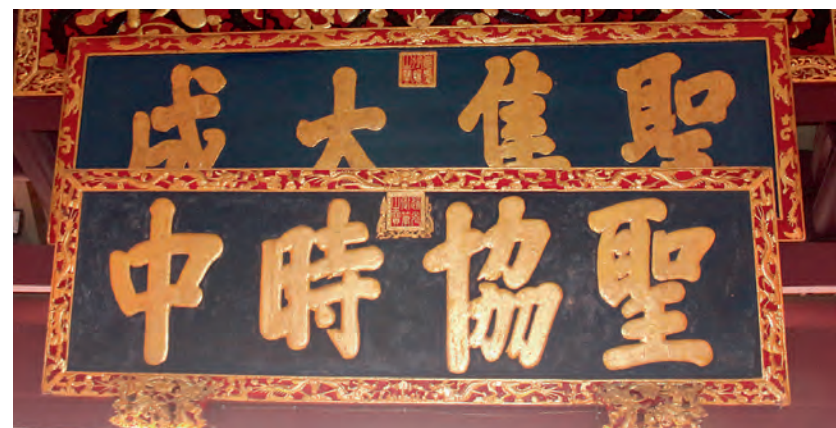 聖集大成
聖協時中